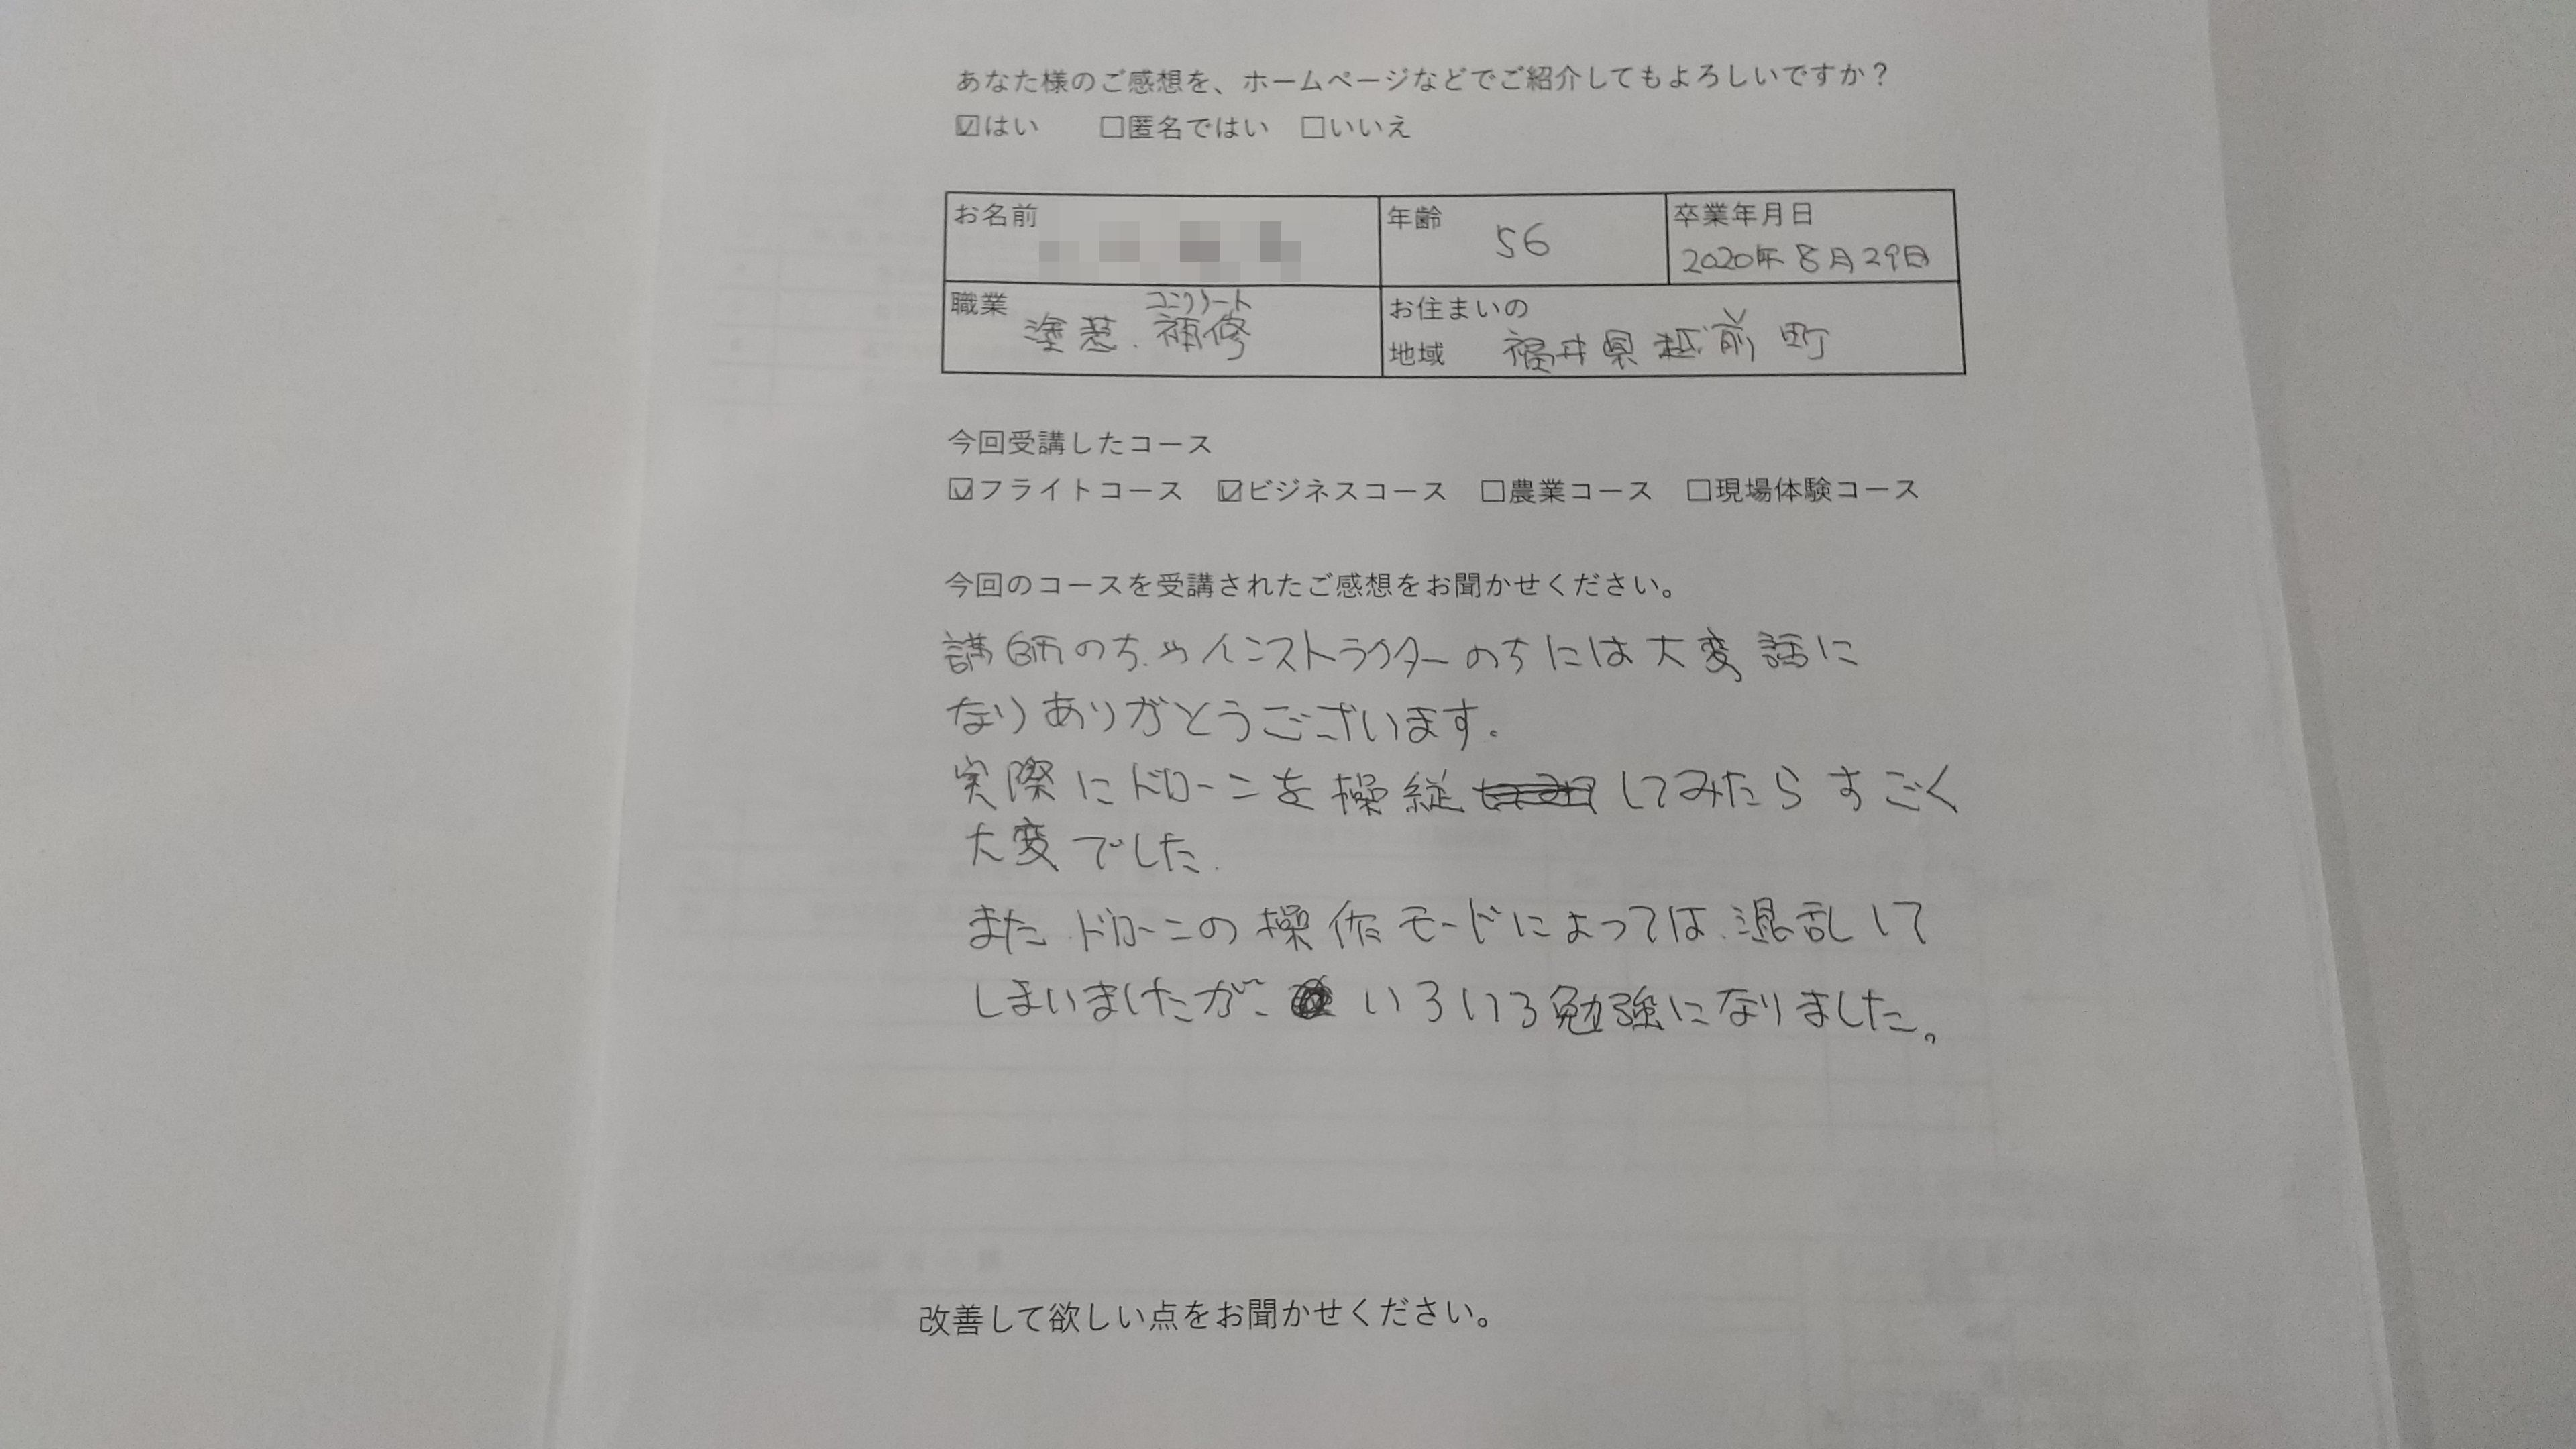 あなた様のご感想を、ホームページなどでご紹介してもよろしいですか？
☑はい　□匿名ではい　□いいえ
お名前
年齢 56
卒業年月日
2020年8月29日
職業 塗装.コンクリート補修
お住まいの
地域 福井県越前町
今回受講したコース
☑フライトコース　☑ビジネスコース　□農業コース　□現場体験コース
今回のコースを受講されたご感想をお聞かせください。
講師のち.ゃインストラクターのちには大変話に
なりありがとうございます.
実際にドローンを操縦してみたらすごく
大変でした.
またドローンの操作モードによっては、混乱して
しまいましたが、いろいろ勉強になりました。
改善して欲しい点をお聞かせください。